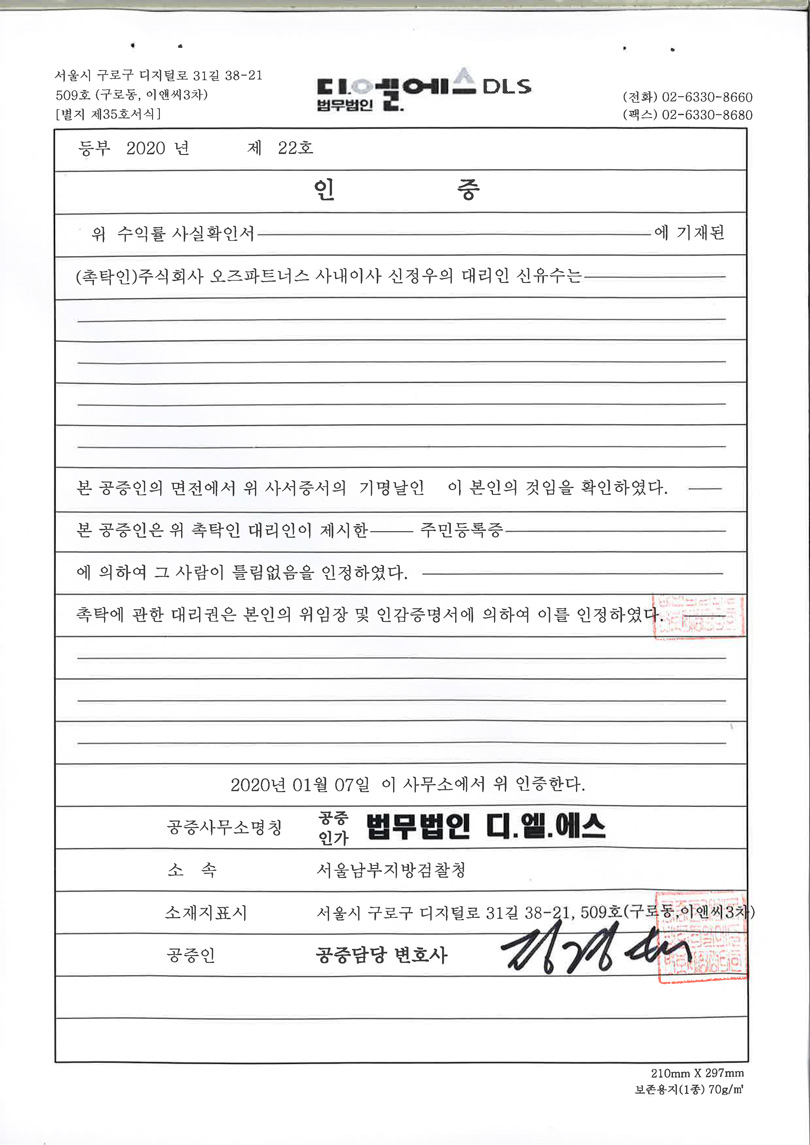 서울시 구로구 디지털로 31길 38-21
509호 (구로동, 이앤씨3차)
[별지 제35호서식]
디.엘.에스 DLS
법무법인
(전화) 02-6330-8660
(팩스) 02-6330-8680
등부 2020 년 제 22호
인 증
위 수익률 사실확인서 에 기재된
(촉탁인)주식회사 오즈파트너스 사내이사 신정우의 대리인 신유수는
본 공증인의 면전에서 위 사서증서의 기명날인 이 본인의 것임을 확인하였다.
본 공증인은 위 촉탁인 대리인이 제시한 주민등록증
에 의하여 그 사람이 틀림없음을 인정하였다.
촉탁에 관한 대리권은 본인의 위임장 및 인감증명서에 의하여 이를 인정하였다.
2020년 01월 07일 이 사무소에서 위 인증한다.
공증사무소명칭 공증 인가 법무법인 디.엘.에스
소 속 서울남부지방검찰청
소재지표시 서울시 구로구 디지털로 31길 38-21, 509호(구로동,이앤씨3차)
공증인 공증담당 변호사
210mm X 297mm
보존용지(1종) 70g/㎡